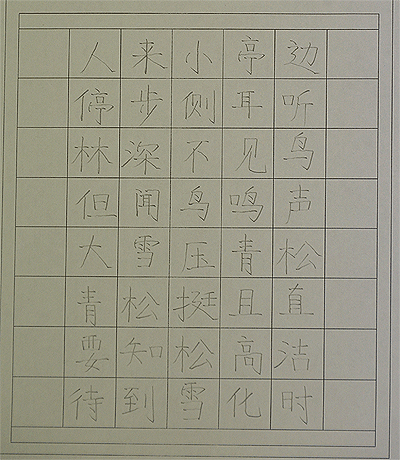 人来小亭边
停步侧耳听
林深不见鸟
但闻鸟鸣声
大雪压青松
青松挺且直
要知松高洁
待到雪化时